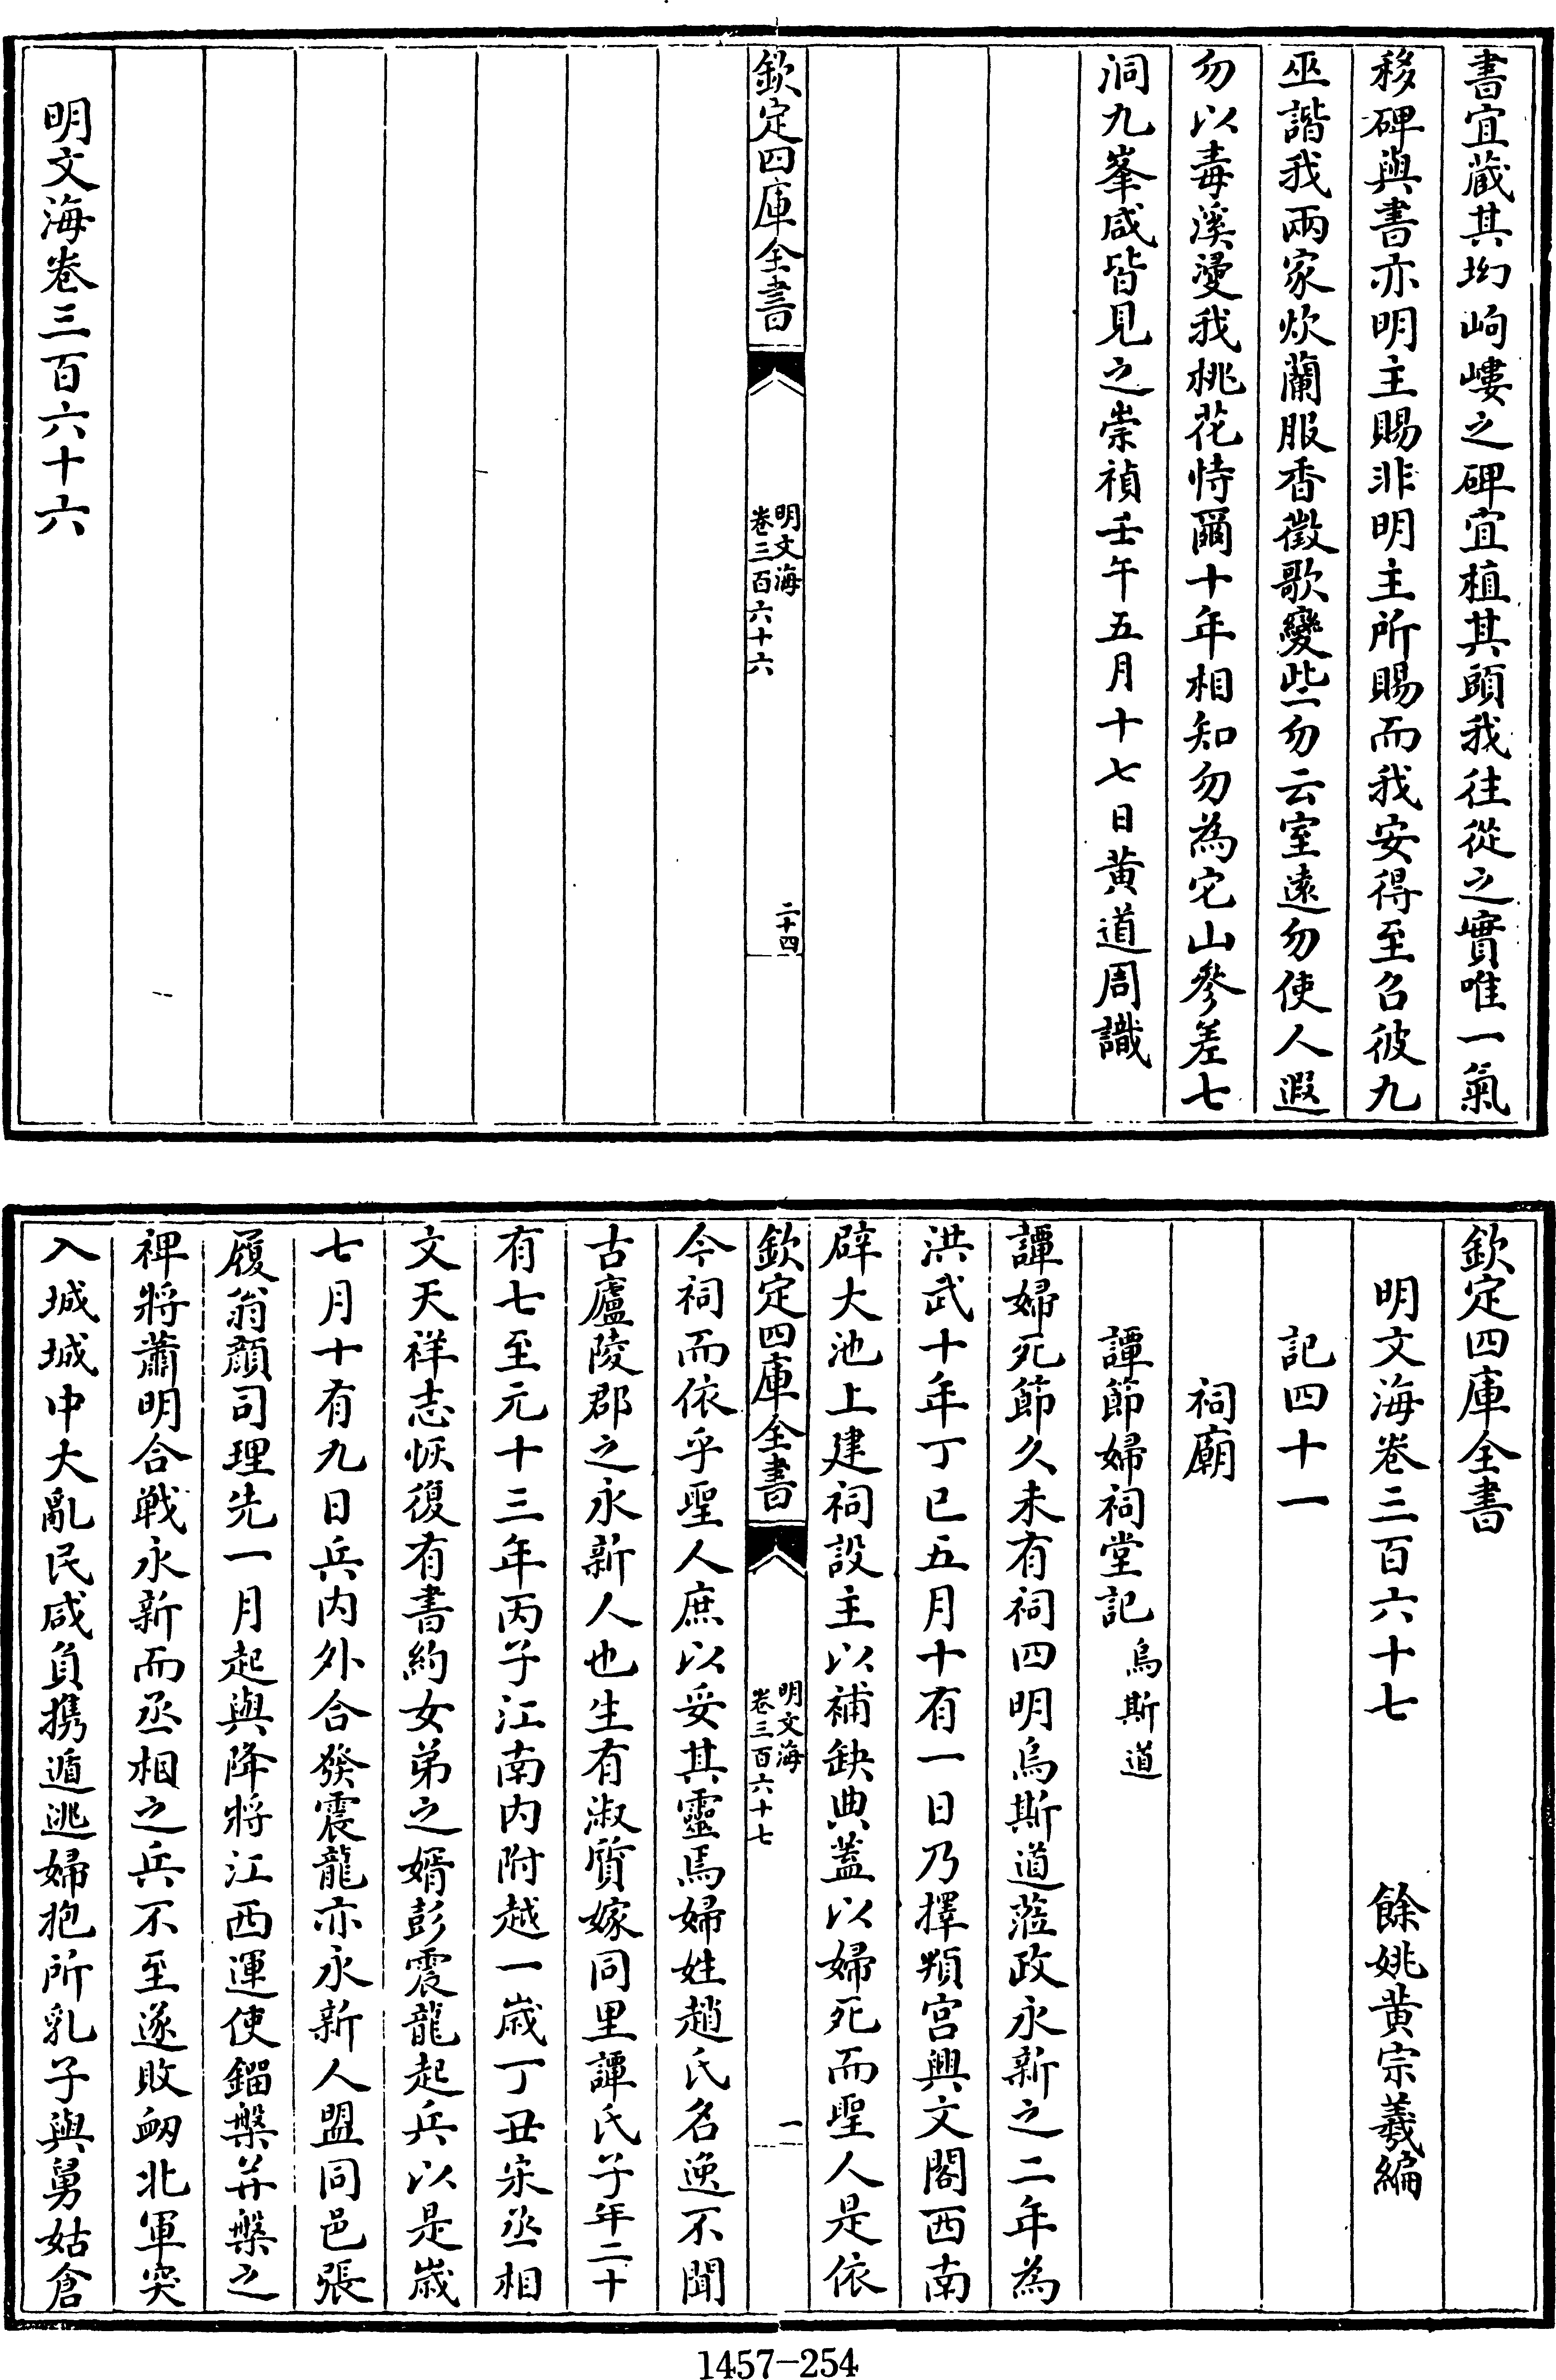 書宜蔵其坳岣嶁之碑宜植其頭我往從之實唯一氣
移碑與書亦明主賜非明主所賜而我安得至召彼九
巫諧我兩家炊蘭服香徵歌變些勿云室遠勿使人遐
勿以毒溪漫我桃花恃爾十年相知勿為它山參差七
洞九峯咸皆見之崇禎壬午五月十七日黄道周識
欽定四庫全書
明文海
卷三百六十六
二十四
明文海卷三百六十六
欽定四庫全書
明文海卷三百六十七
餘姚黄宗羲編
記四十一
祠廟
譚節婦祠堂記
烏斯道
譚婦死節久未有祠四明烏斯道蒞政永新之二年為
洪武十年丁巳五月十有一日乃擇頖宮興文閣西南
辟大池上建祠設主以補缺典蓋以婦死而聖人是依
欽定四庫全書
明文海
卷三百六十七
一
今祠而依乎聖人庶以妥其靈焉婦姓趙氏名逸不聞
古廬陵郡之永新人也生有淑質嫁同里譚氏子年二十
有七至元十三年丙子江南内附越一嵗丁丑宋丞相
文天祥志恢復有書約女弟之婿彭震龍起兵以是嵗
七月十有九日兵内外合發震龍亦永新人盟同邑張
履翁顔司理先一月起與降將江西運使鎦槃并槃之
裨將蕭明合戰永新而丞相之兵不至遂敗衂北軍突
入城城中大亂民咸負携遁逃婦抱所乳子與舅姑倉
1457-254